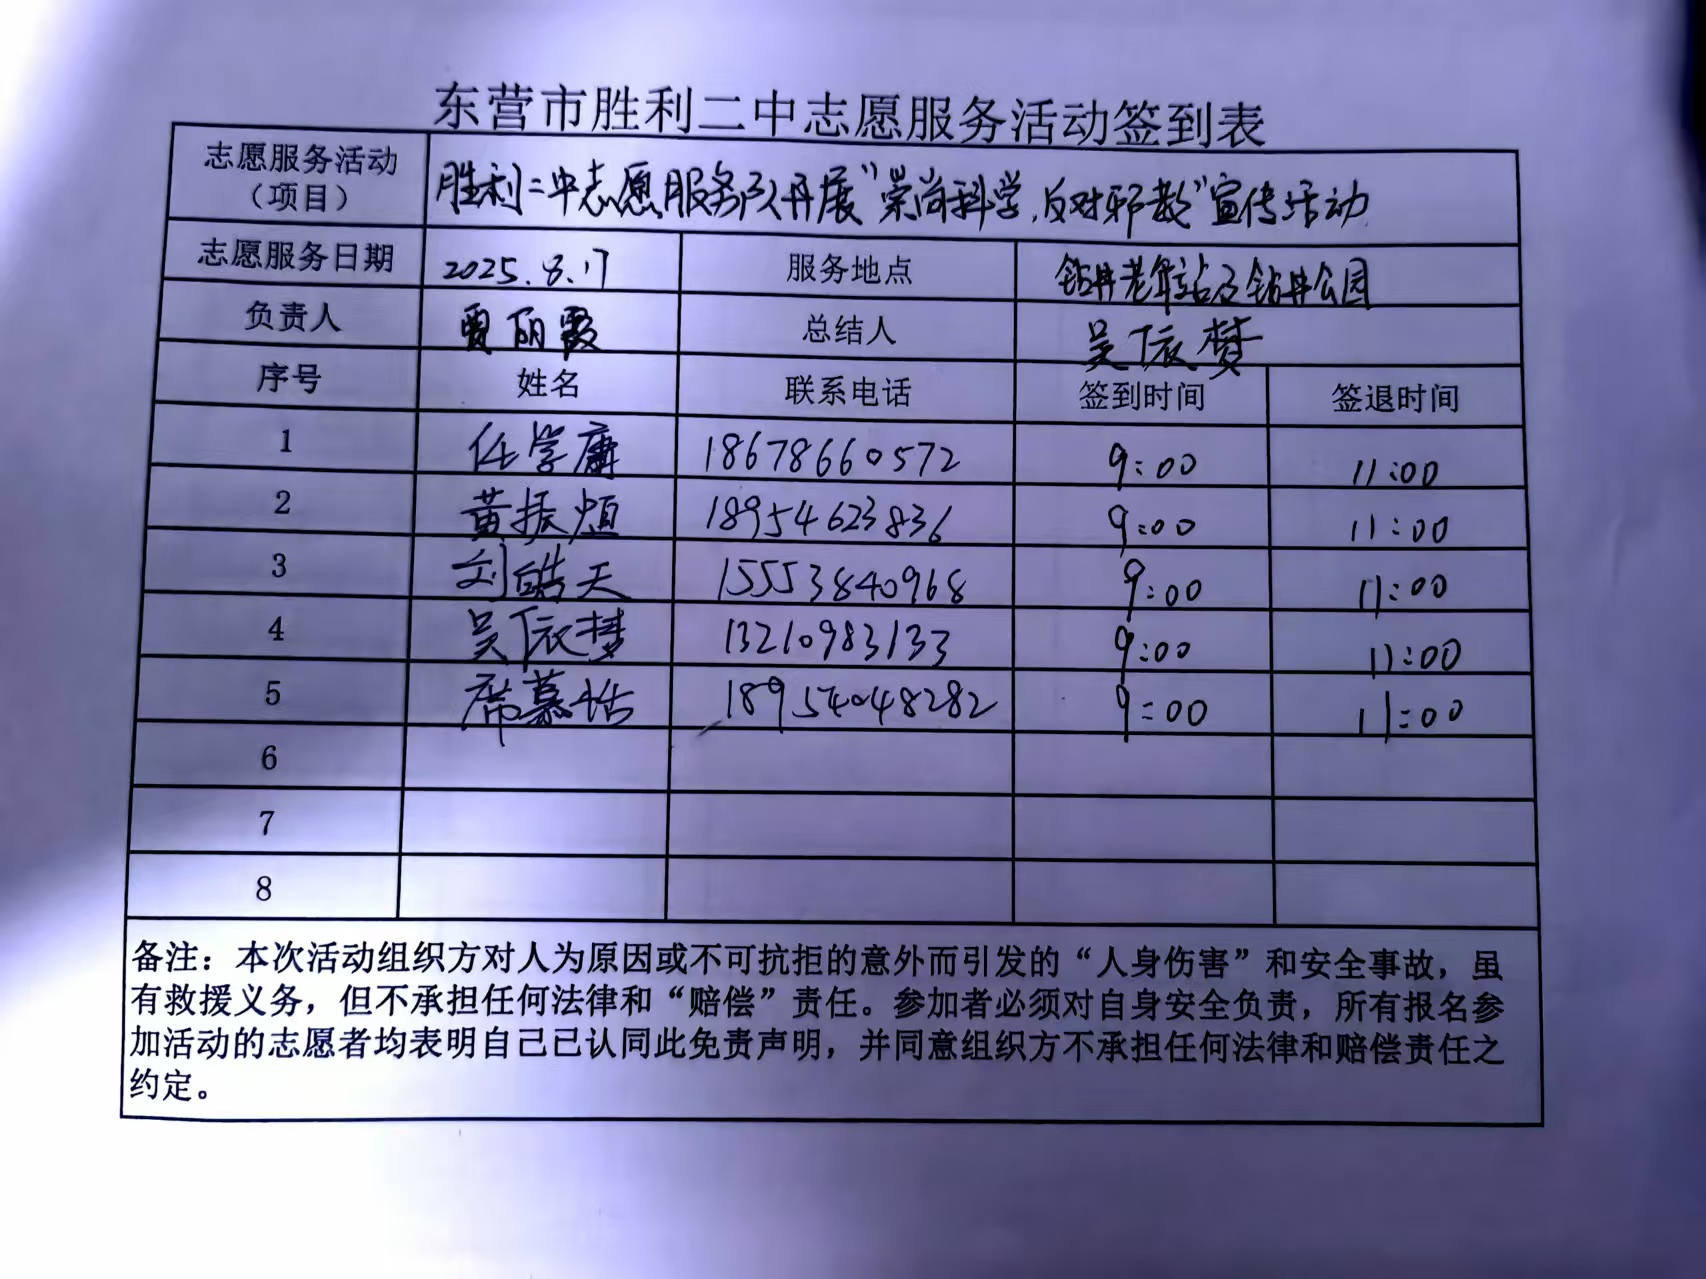 东营市胜利二中志愿服务活动签到表
志愿服务活动（项目） 胜利二中志愿服务队开展“崇尚科学，反对邪教”宣传活动
志愿服务日期 2025.8.17 服务地点 钻井老年站及钻井公园
负责人 贾丽霞 总结人 吴依梦
序号 姓名 联系电话 签到时间 签退时间
1 任学康 18678660572 9:00 11:00
2 黄振烜 18954623836 9:00 11:00
3 刘皓天 15553840968 9:00 11:00
4 吴依梦 13210983133 9:00 11:00
5 席慕恬 18954048282 9:00 11:00
6
7
8
备注：本次活动组织方对人为原因或不可抗拒的意外而引发的“人身伤害”和安全事故，虽
有救援义务，但不承担任何法律和“赔偿”责任。参加者必须对自身安全负责，所有报名参
加活动的志愿者均表明自己已认同此免责声明，并同意组织方不承担任何法律和赔偿责任之
约定。